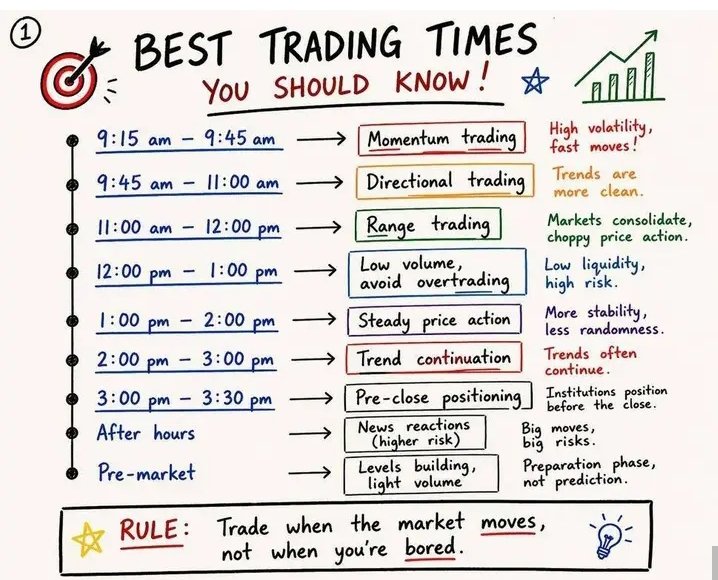 1
BEST TRADING TIMES
YOU SHOULD KNOW!
9:15 am – 9:45 am → Momentum trading High volatility,
fast moves!
9:45 am – 11:00 am → Directional trading Trends are
more clean.
11:00 am – 12:00 pm → Range trading Markets consolidate,
choppy price action.
12:00 pm – 1:00 pm → Low volume, Low liquidity,
avoid overtrading high risk.
1:00 pm – 2:00 pm → Steady price action More stability,
less randomness.
2:00 pm – 3:00 pm → Trend continuation Trends often
continue.
3:00 pm – 3:30 pm → Pre-close positioning Institutions position
before the close.
After hours → News reactions Big moves,
(higher risk) big risks.
Pre-market → Levels building, Preparation phase,
light volume not prediction.
RULE: Trade when the market moves,
not when you're bored.